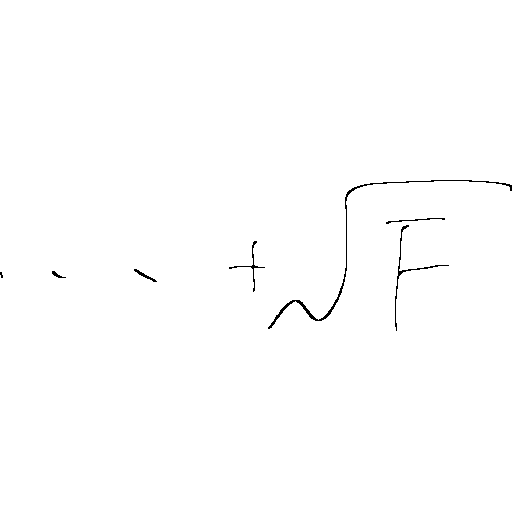 ... + √F